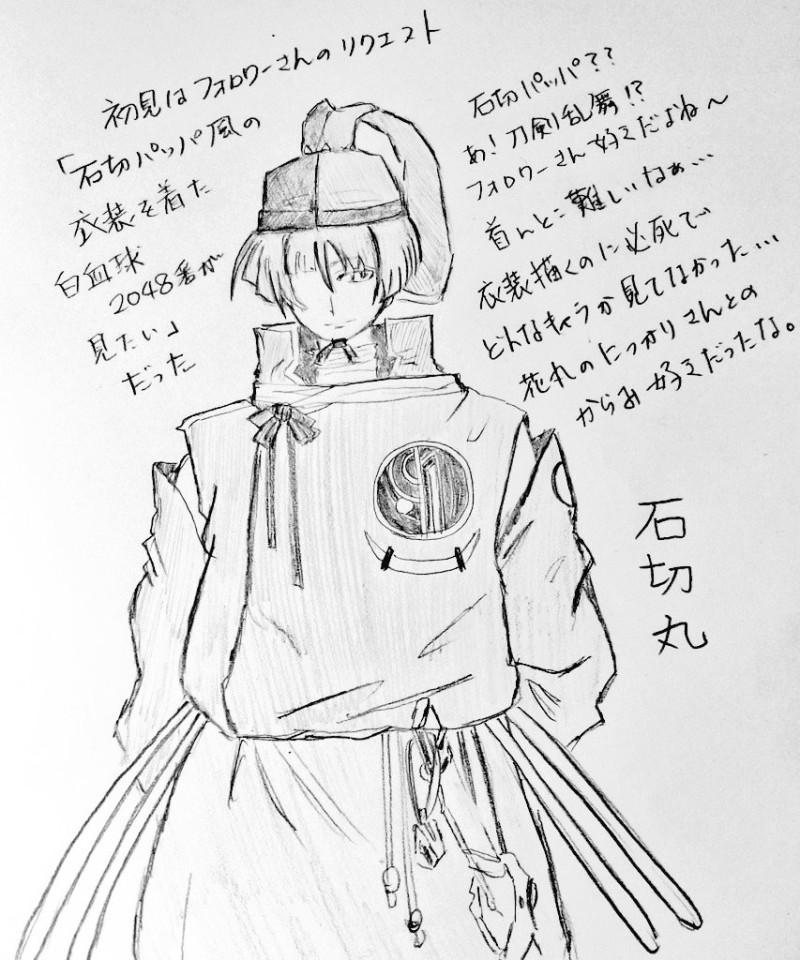 初見はフォロワーさんのリクエスト
「石切パッパ風の
衣装を着た
白血球
2048番が
見たい」
だった
石切パッパ??
あ!刀剣乱舞!?
フォロワーさん好きだよね〜
首んとこ難しいなぁ…
衣装描くのに必死で
どんなキャラか見てなかった…
花丸のにっかりさんとの
からみ好きだったな。
石切丸